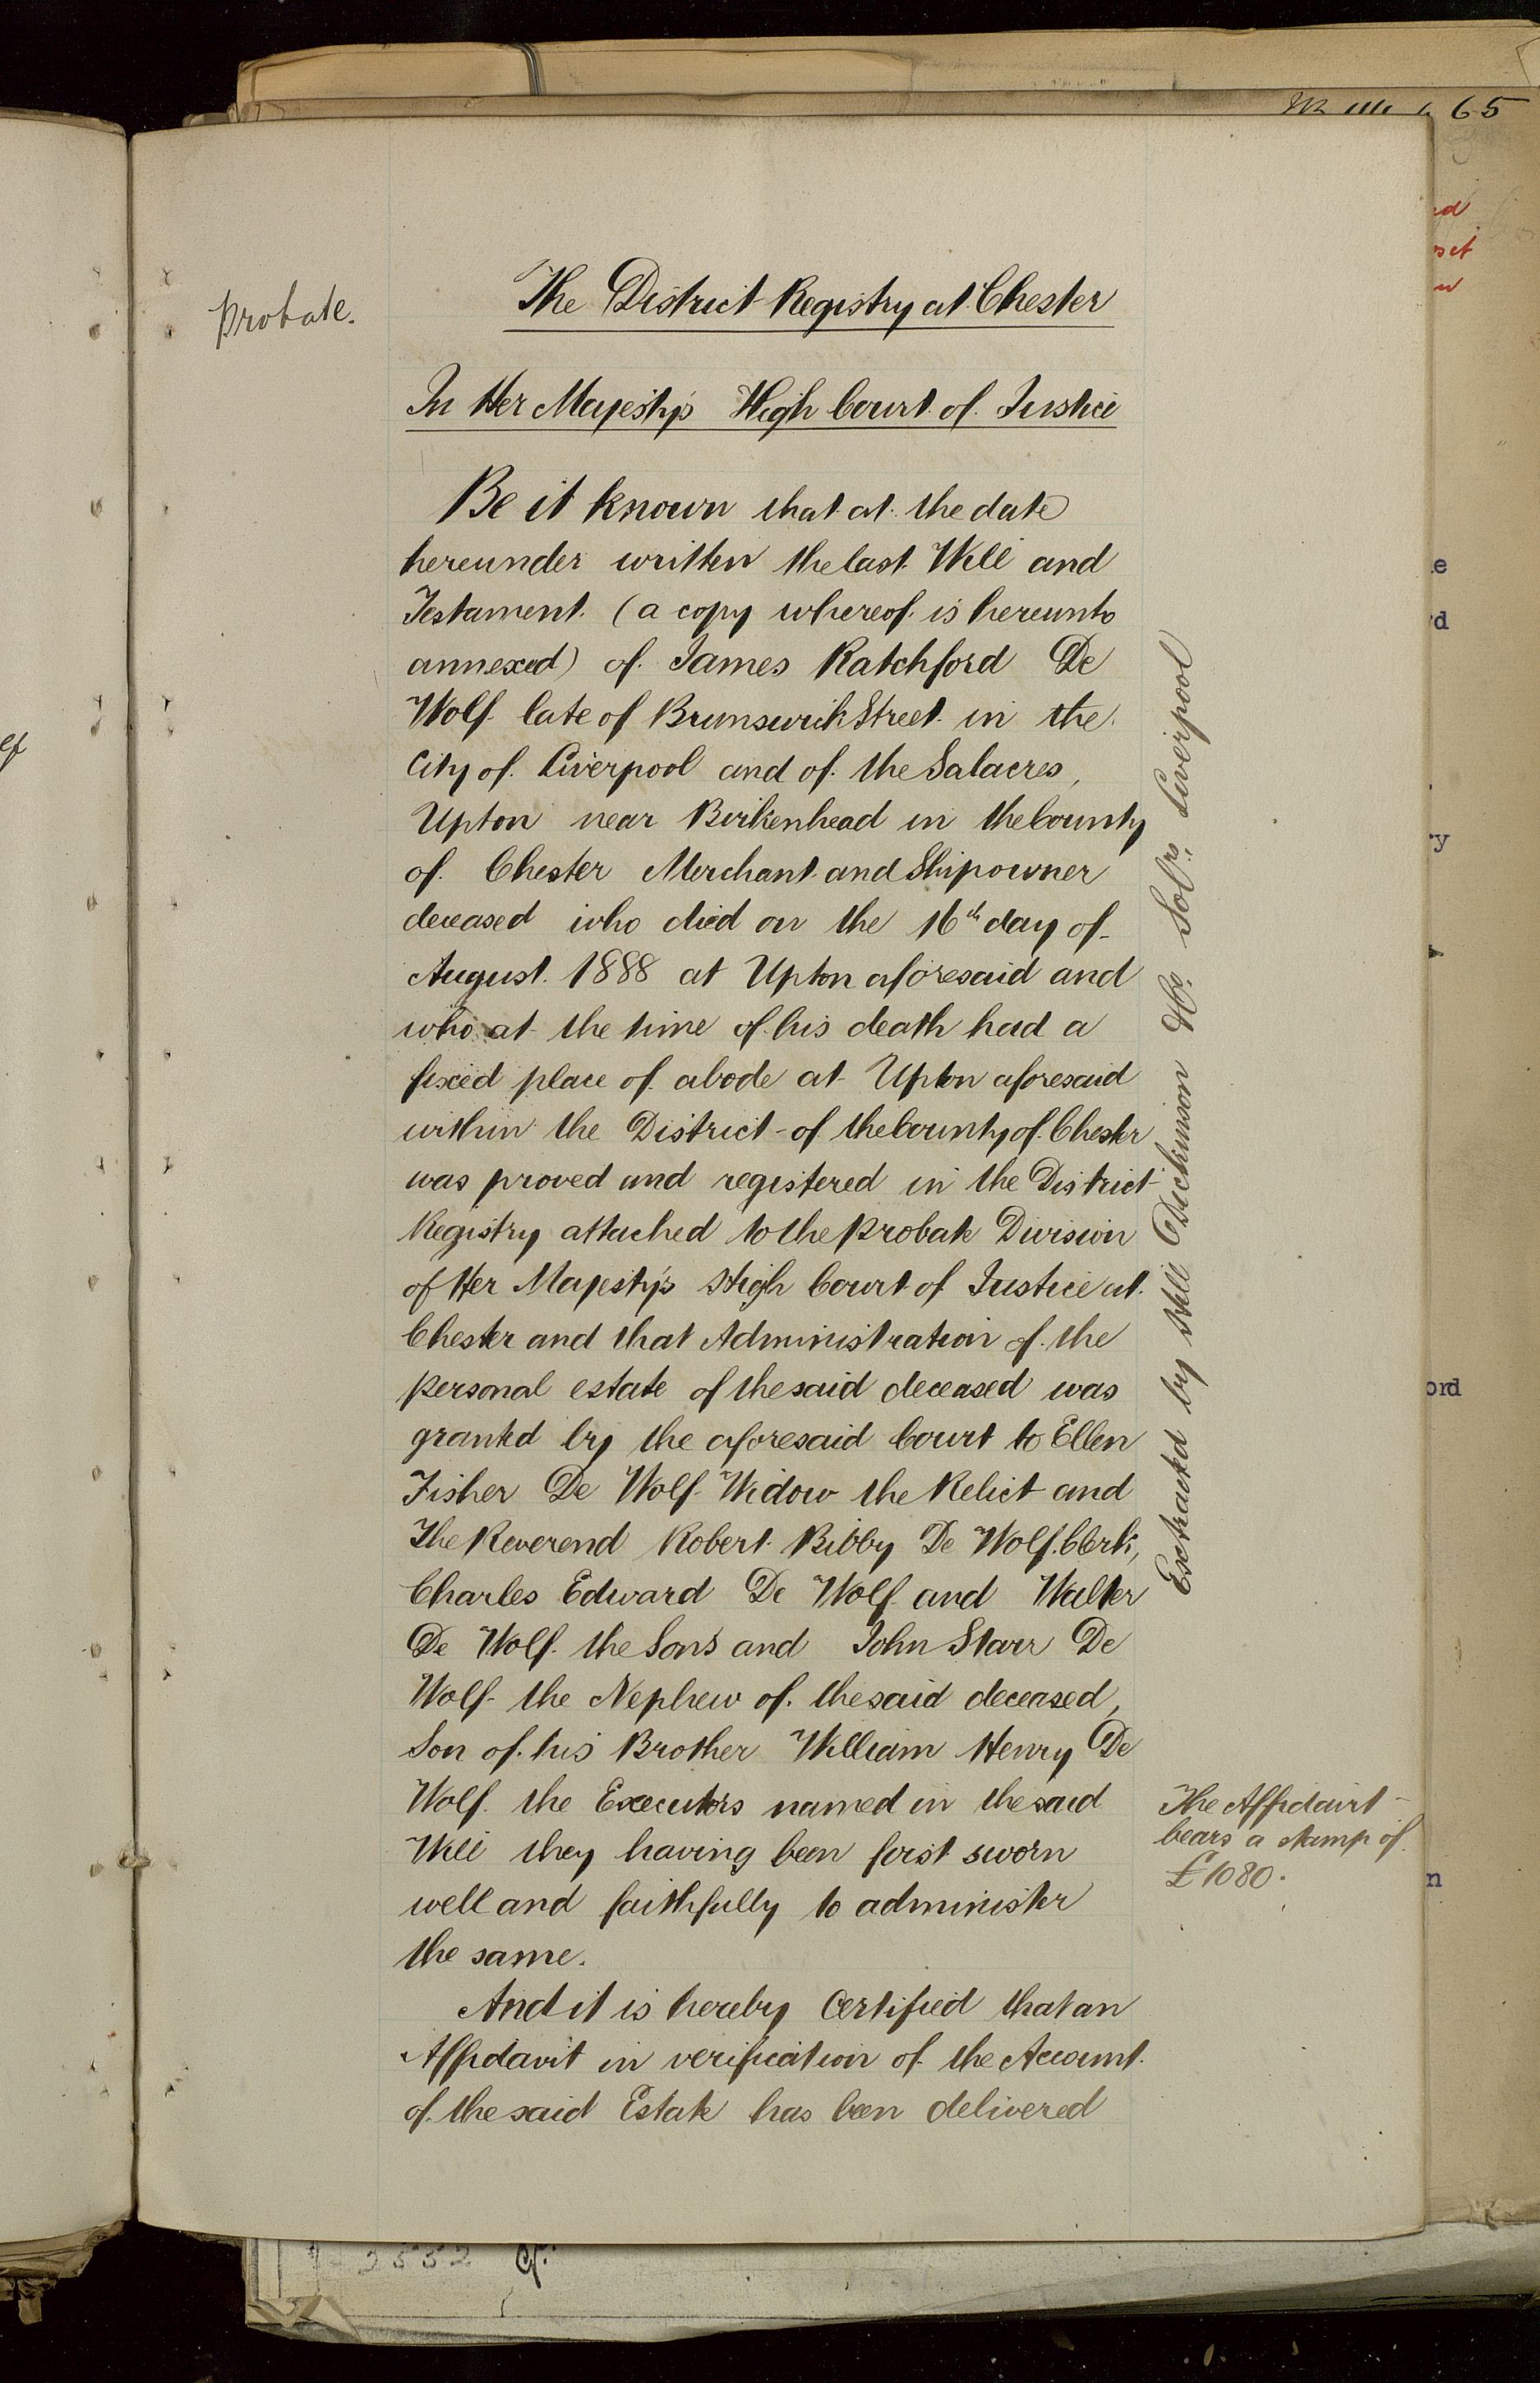 probate.
The District Registry at Chester
In Her Majesty's High Court of Justice
Be it known that at the date
hereunder written the last Will and
Testament (a copy whereof is hereunto
annexed) of James Ratchford De
Wolf late of Brunswick Street in the
City of Liverpool and of the Salacres,
Upton near Birkenhead in the County
of Chester Merchant and Shipowner
deceased who died on the 16th day of
August 1888 at Upton aforesaid and
who at the time of his death had a
fixed place of abode at Upton aforesaid
within the District of the County of Chester
was proved and registered in the District
Registry attached to the probate Division
of Her Majesty's High Court of Justice at
Chester and that Administration of the
personal estate of the said deceased was
granted by the aforesaid Court to Ellen
Fisher De Wolf Widow the Relict and
The Reverend Robert Bibby De Wolf Clerk,
Charles Edward De Wolf and Walter
De Wolf the Sons and John Starr De
Wolf the Nephew of the said deceased,
Son of his Brother William Henry De
Wolf the Executors named in the said
Will they having been first sworn
well and faithfully to administer
the same.
And it is hereby Certified that an
Affidavit in verification of the Account
of the said Estate has been delivered
Extracted by Hill Dickinson &Co. Solrs. Liverpool
The Affidavit
bears a stamp of
£1080.
65
ef
ord
2532